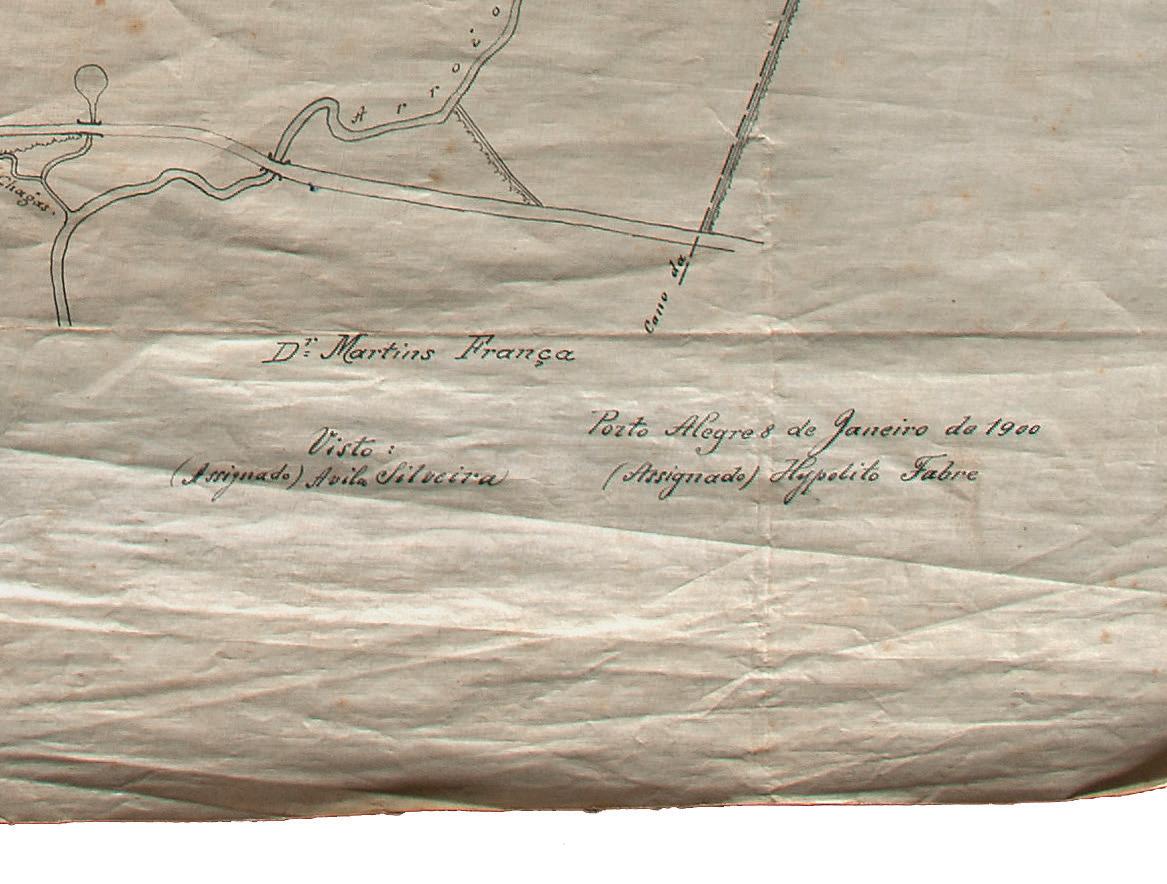 Arroio
Chagas.
Cano da
Dr. Martins França
Porto Alegre 8 de Janeiro de 1900
Visto:
(Assignado) Avila Silveira
(Assignado) Hypolito Fabre